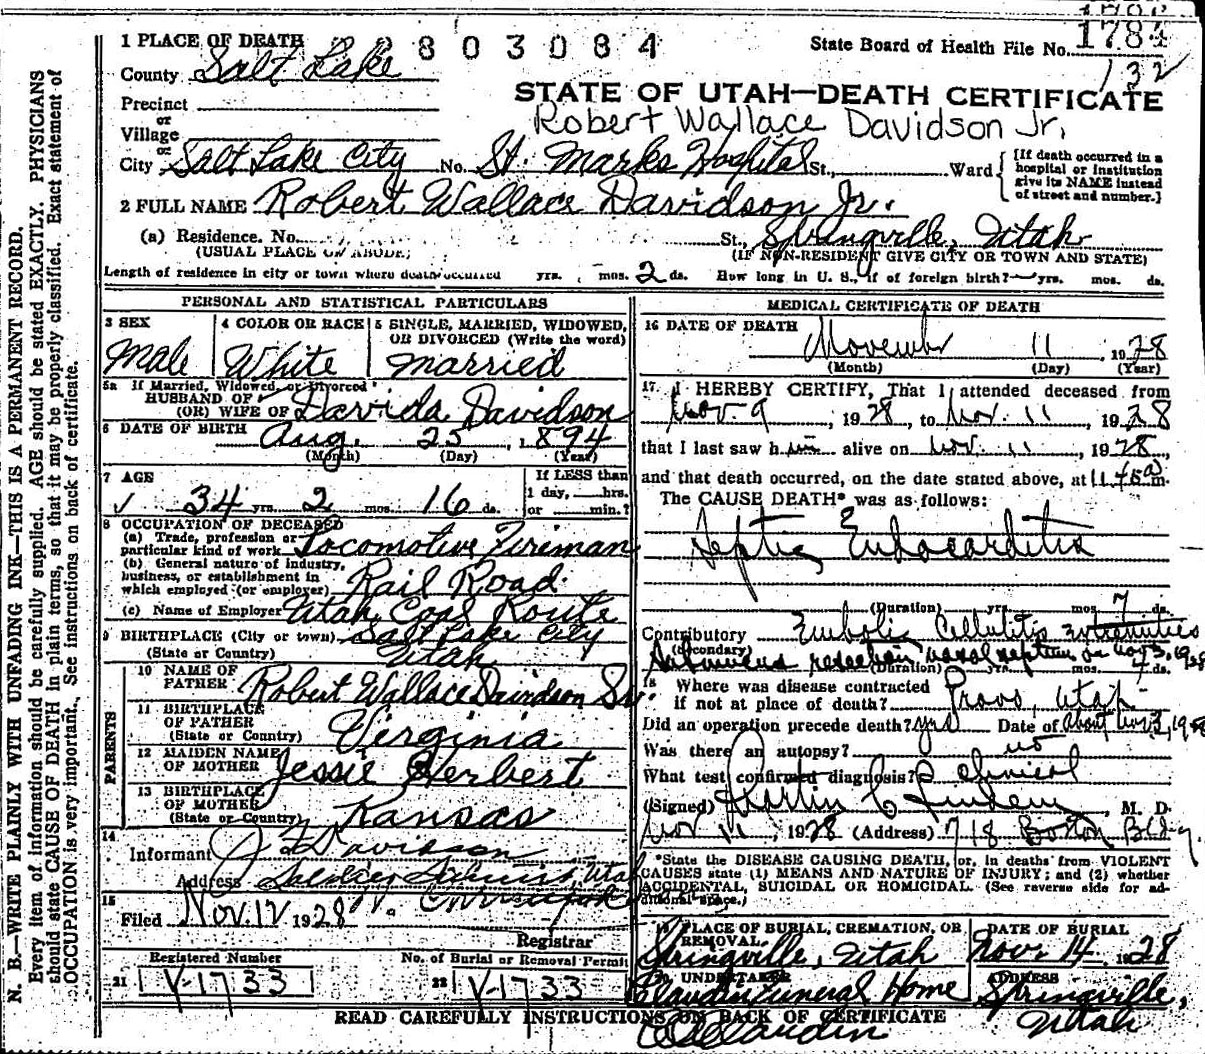 1784
1 PLACE OF DEATH 2 8 8 0 3 0 8 4 State Board of Health File No. 1784
County Salt Lake 132
STATE OF UTAH—DEATH CERTIFICATE
Precinct
or
Village
Robert Wallace Davidson Jr.
or
City Salt Lake City No. St. Marks Hospital St., Ward {[If death occurred in a hospital or institution give its NAME instead of street and number.]
2 FULL NAME Robert Wallace Davidson Jr.
(a) Residence. No. St., Springville, Utah
(USUAL PLACE OF ABODE) (IF NON-RESIDENT GIVE CITY OR TOWN AND STATE)
Length of residence in city or town where death occurred yrs. mos. 2 ds. How long in U. S., if of foreign birth? yrs. mos. ds.
PERSONAL AND STATISTICAL PARTICULARS
3 SEX
Male
4 COLOR OR RACE
White
5 SINGLE, MARRIED, WIDOWED,
OR DIVORCED (Write the word)
married
5a If Married, Widowed, or Divorced
HUSBAND OF
(OR) WIFE OF Davida Davidson
6 DATE OF BIRTH Aug. 25, 1894
(Month) (Day) (Year)
7 AGE
34 yrs. 2 mos. 16 ds.
If LESS than
1 day, hrs.
or min.?
8 OCCUPATION OF DECEASED
(a) Trade, profession or
particular kind of work Locomotive Fireman
(b) General nature of industry,
business, or establishment in
which employed (or employer) Rail Road
(c) Name of Employer Utah Coal Route
9 BIRTHPLACE (City or town) Salt Lake City
(State or Country) Utah
PARENTS
10 NAME OF
FATHER Robert Wallace Davidson Sr.
11 BIRTHPLACE
OF FATHER
(State or Country) Virginia
12 MAIDEN NAME
OF MOTHER Jessie Herbert
13 BIRTHPLACE
OF MOTHER
(State or Country) Kansas
14
Informant J Davidson
Address Utah
15
Filed Nov. 12 1928
Registrar
Registered Number
21 V-1733
No. of Burial or Removal Permit
22 V-1733
MEDICAL CERTIFICATE OF DEATH
16 DATE OF DEATH
November 11, 1928
(Month) (Day) (Year)
17. I HEREBY CERTIFY, That I attended deceased from
Nov. 9, 1928, to Nov. 11, 1928
that I last saw him alive on Nov. 11, 1928,
and that death occurred, on the date stated above, at 11:45 a m.
The CAUSE DEATH* was as follows:
Septic Endocarditis
(Duration) yrs. mos. 7 ds.
Contributory Embolic Cellulitis extremities
(Secondary) Submucous resection nasal septum Nov 3, 1928
(Duration) yrs. mos. ds.
18 Where was disease contracted
if not at place of death? Provo, Utah
Did an operation precede death? yes Date of about Nov 3, 1928
Was there an autopsy? no
What test confirmed diagnosis? clinical
(Signed) Martin C Lindem, M. D.
Nov 11, 1928 (Address) 718 Boston Bldg.
*State the DISEASE CAUSING DEATH, or, in deaths from VIOLENT
CAUSES state (1) MEANS AND NATURE OF INJURY; and (2) whether
ACCIDENTAL, SUICIDAL OR HOMICIDAL. (See reverse side for ad-
ditional space.)
19 PLACE OF BURIAL, CREMATION, OR
REMOVAL
Springville, Utah
DATE OF BURIAL
Nov. 14 1928
20 UNDERTAKER
Claudin Funeral Home
ADDRESS
Springville,
Utah
READ CAREFULLY INSTRUCTIONS ON BACK OF CERTIFICATE
Claudin
N. B.—WRITE PLAINLY WITH UNFADING INK—THIS IS A PERMANENT RECORD.
Every item of information should be carefully supplied. AGE should be stated EXACTLY. PHYSICIANS
should state CAUSE OF DEATH in plain terms, so that it may be properly classified. Exact statement of
OCCUPATION is very important. See instructions on back of certificate.